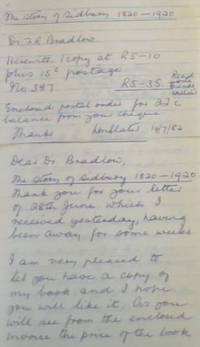 The Story of Sidbury 1820-1920
Dr. F.R. Bradlow
Herewith 1 copy at R5-10
plus 25c postage
No 387 R5-35
Enclosed postal order for 22c
balance from your cheque
Thanks 14/7/82
Dear Dr. Bradlow,
The Story of Sidbury 1820-1920
Thank you for your letter
of 28th June which I
received yesterday, having
been away for some weeks
I am very pleased to
let you have a copy of
my book and I hope
you will like it. As you
will see from the enclosed
invoice the price of the book